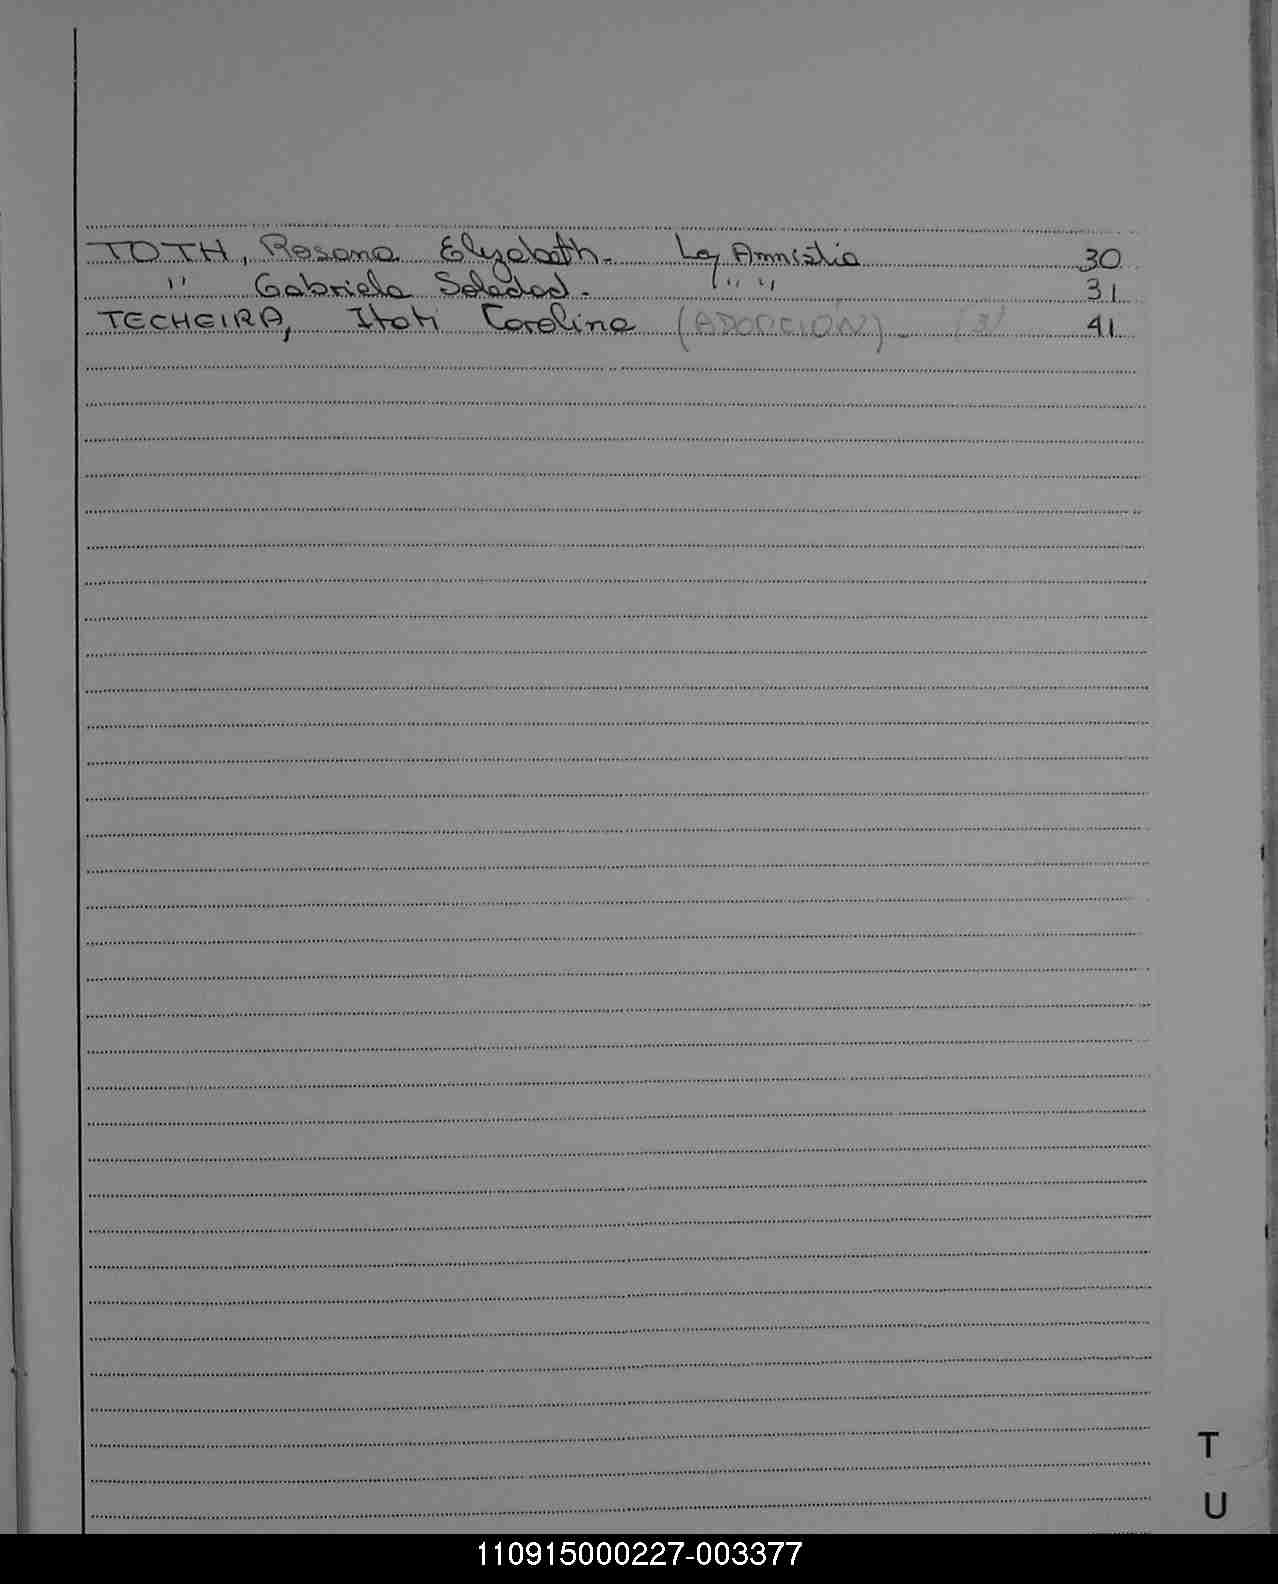 TOTH, Rosana Elyzabeth. Ley Amnistia 30
" Gabriela Soledad. " " 31
TECHEIRA, Itati Carolina (ADOPCION). (3) 41
T
U
110915000227-003377